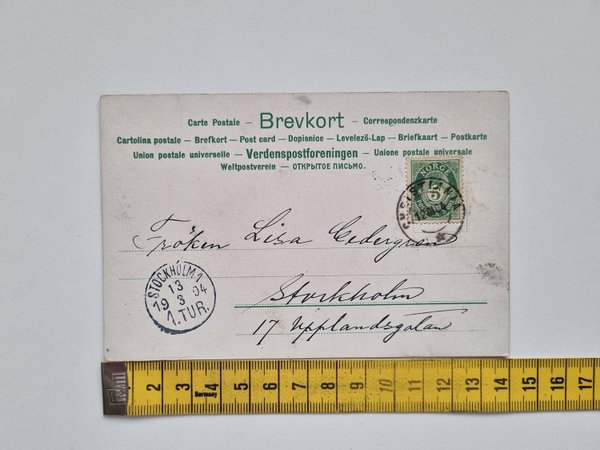 Carte Postale — Brevkort — Correspondenzkarte
Cartolina postale — Brefkort — Post card — Dopisnice — Levelező-Lap — Briefkaart — Postkarte
Union postale universelle — Verdenspostforeningen — Unione postale universale
Weltpostverein — ОТКРЫТОЕ ПИСЬМО.
NORGE
5
CHRISTIANIA
Fröken Lisa Cedergren
Stockholm
17 Upplandsgatan
STOCKHOLM 1
13
19 3 04
1.TUR.
2 3 4 5 6 7 8 9 10 11 12 13 14 15 16 17
Germany